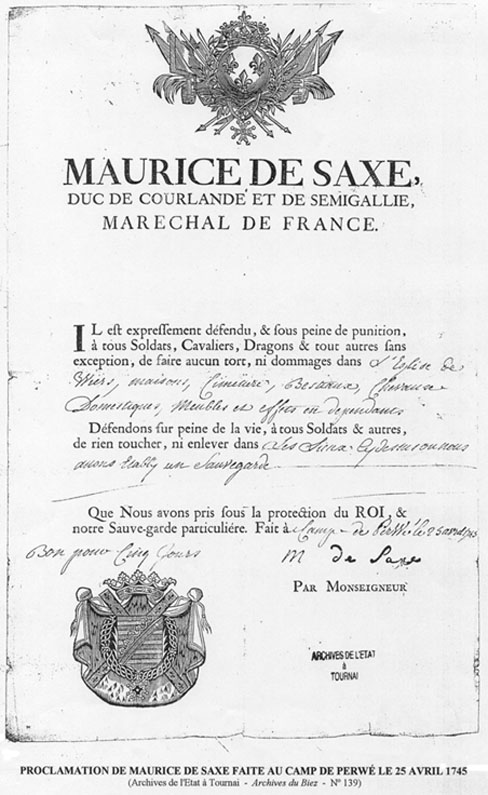 MAURICE DE SAXE,
DUC DE COURLANDE ET DE SEMIGALLIE,
MARECHAL DE FRANCE.
IL est expressement défendu, & sous peine de punition,
à tous Soldats, Cavaliers, Dragons & tout autres sans
exception, de faire aucun tort, ni dommages dans L'Eglise de
Wiers, maisons, Cimetiere, Bestiaux, Chevaux
Domestiques, Meubles et effets en dependans
Défendons sur peine de la vie, à tous Soldats & autres,
de rien toucher, ni enlever dans Les Lieux nous
avons Etably un Sauvegarde
Que Nous avons pris sous la protection du ROI, &
notre Sauve-garde particuliére. Fait à Camp de Perwé le 25 avril 1745
Bon pour Cinq Jours
M de Saxe
PAR MONSEIGNEUR
ARCHIVES DE L'ETAT
à
TOURNAI
PROCLAMATION DE MAURICE DE SAXE FAITE AU CAMP DE PERWÉ LE 25 AVRIL 1745
(Archives de l'Etat à Tournai - Archives du Biez - N° 139)